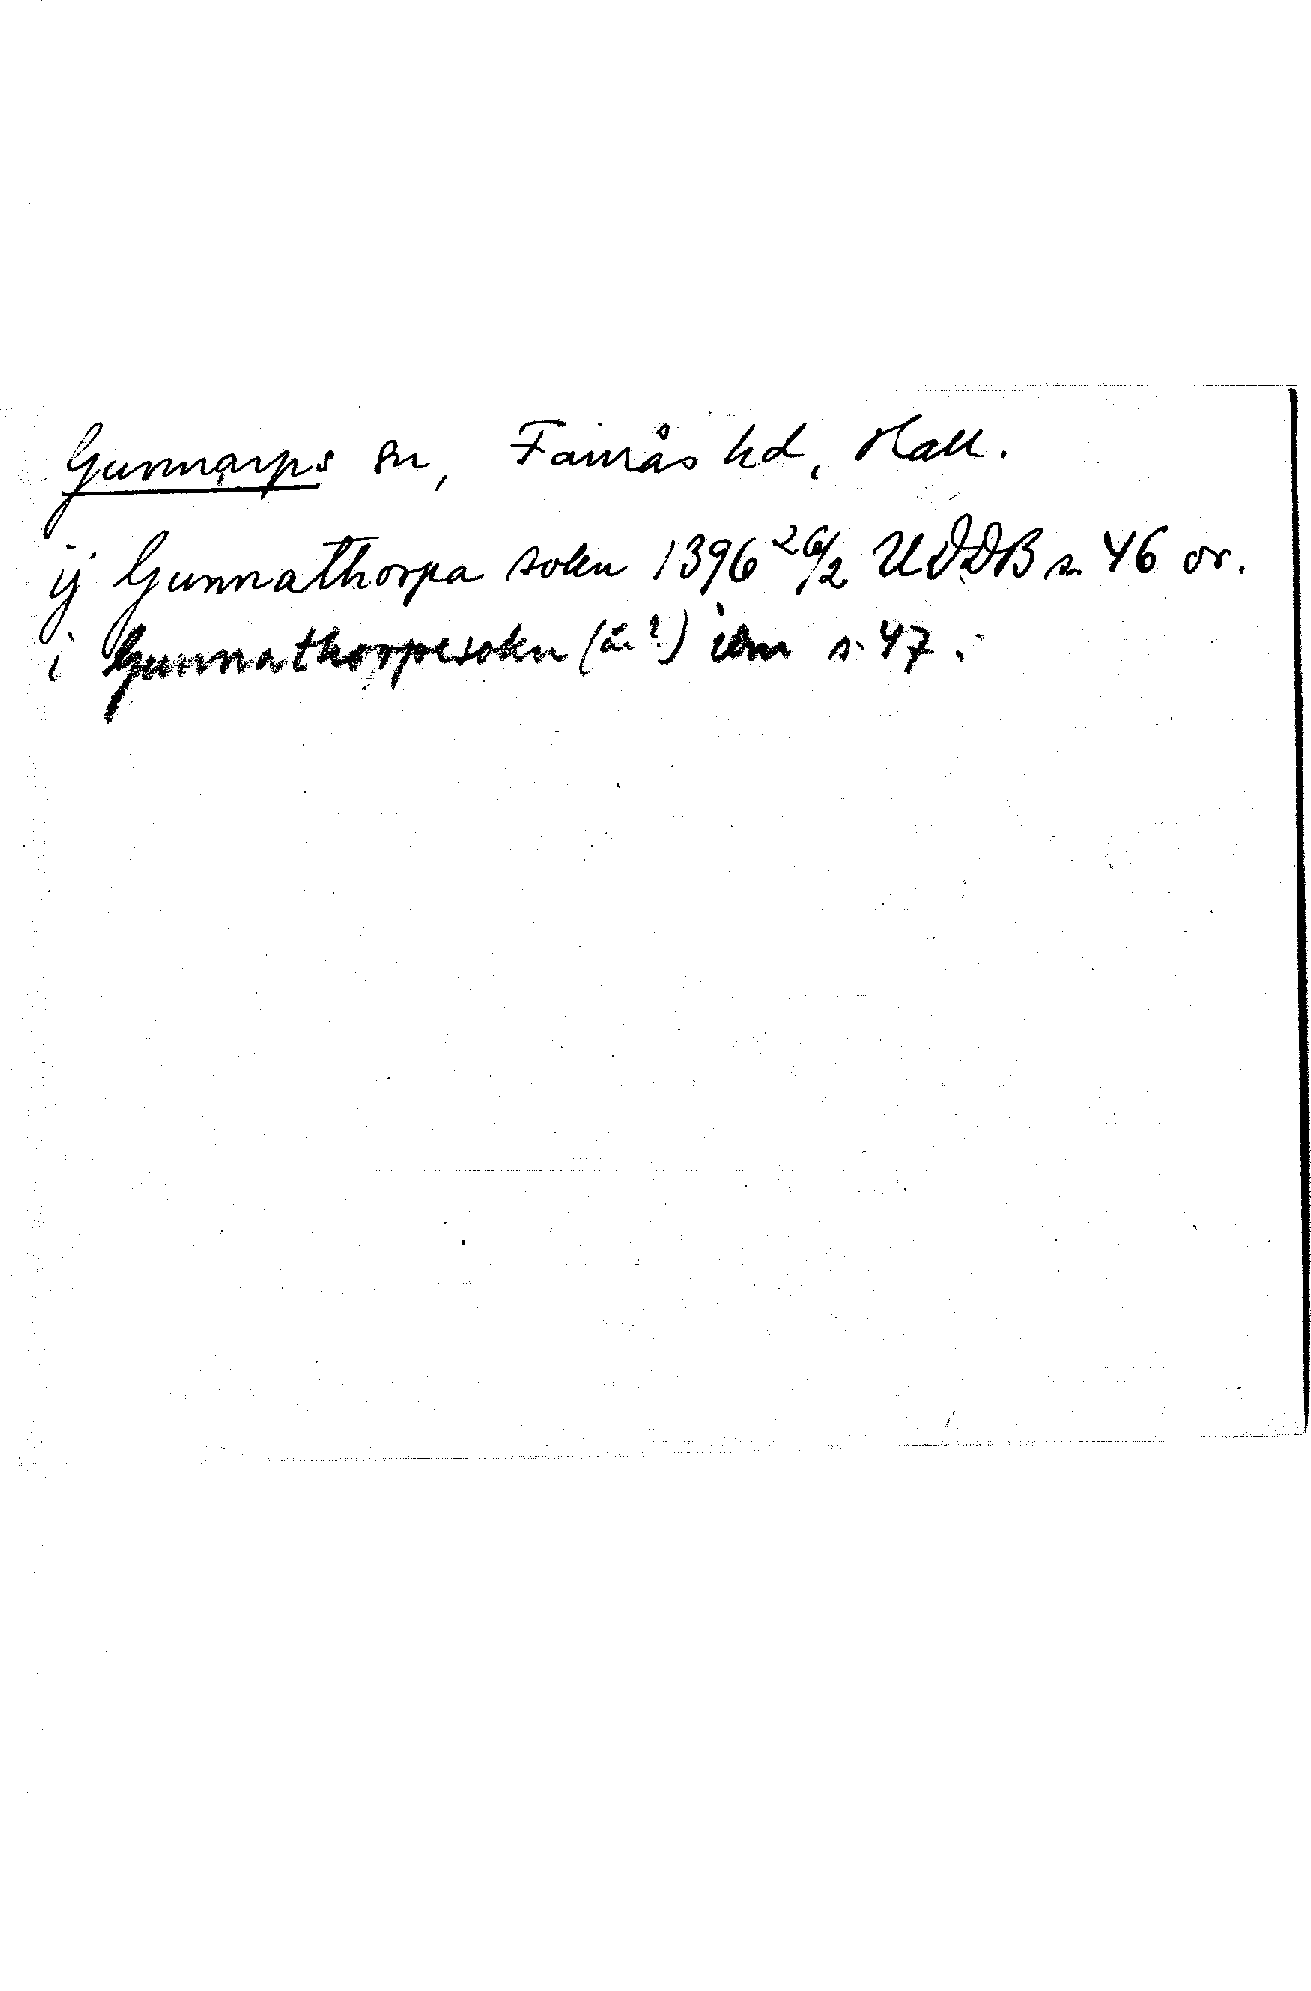 Gunnarps sn, Faurås hd, Hall.
ij Gunnathorpa sokn 1396 26/2 UDDB s. 46 or.
i Gunnathorpesokn (år?) ibm s. 47.